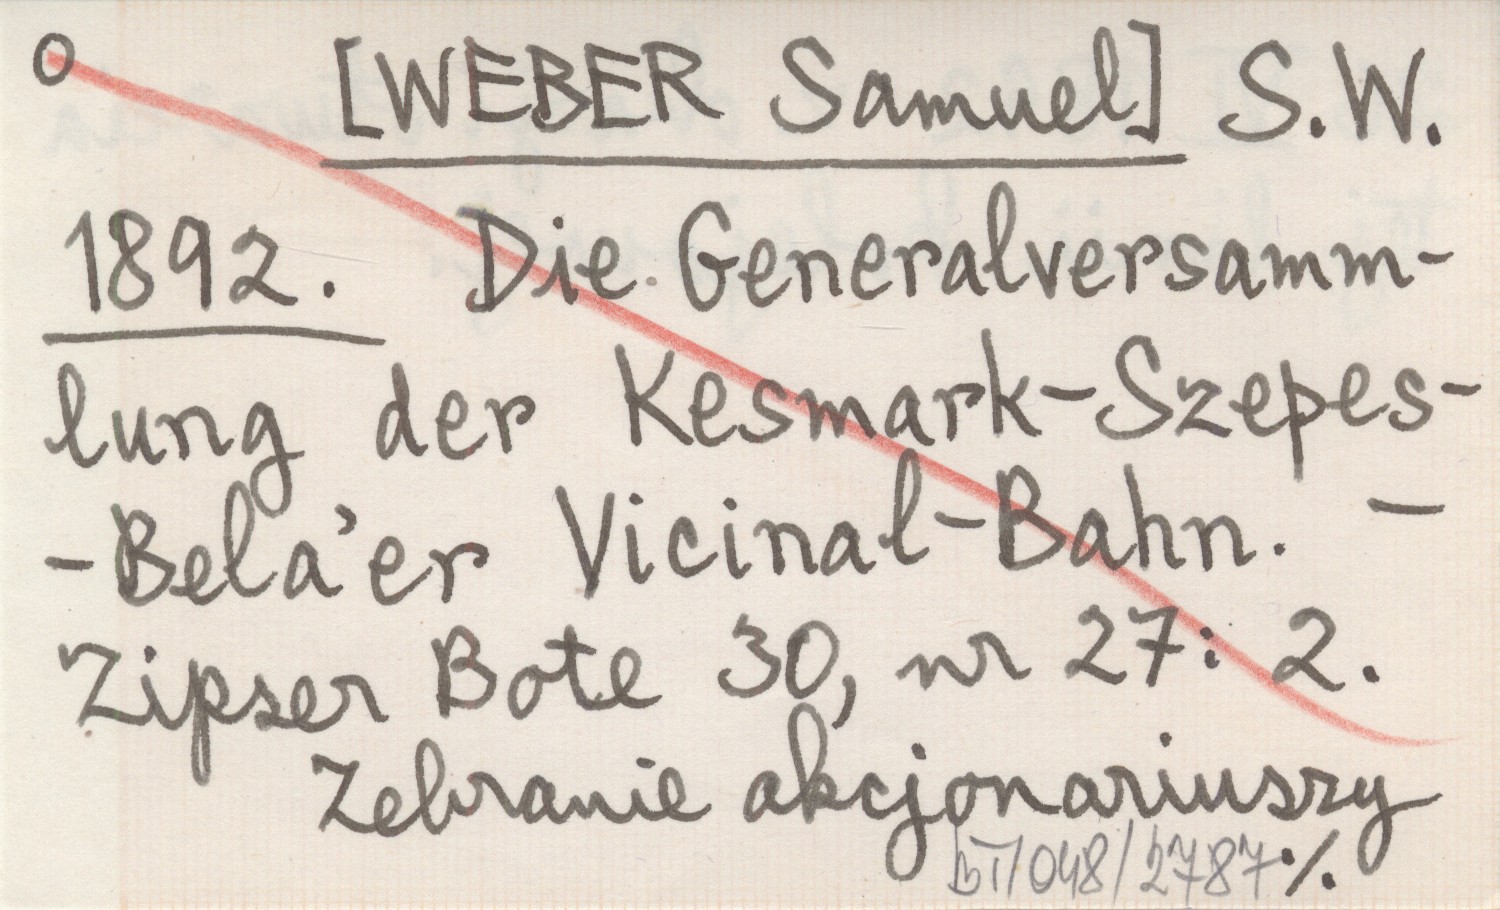 O [WEBER Samuel] S.W.
1892. Die Generalversamm-
lung der Kesmark-Szepes-
-Bela'er Vicinal-Bahn. –
Zipser Bote 30, nr 27: 2.
Zebranie akcjonariuszy
bT/048/2787 ./.